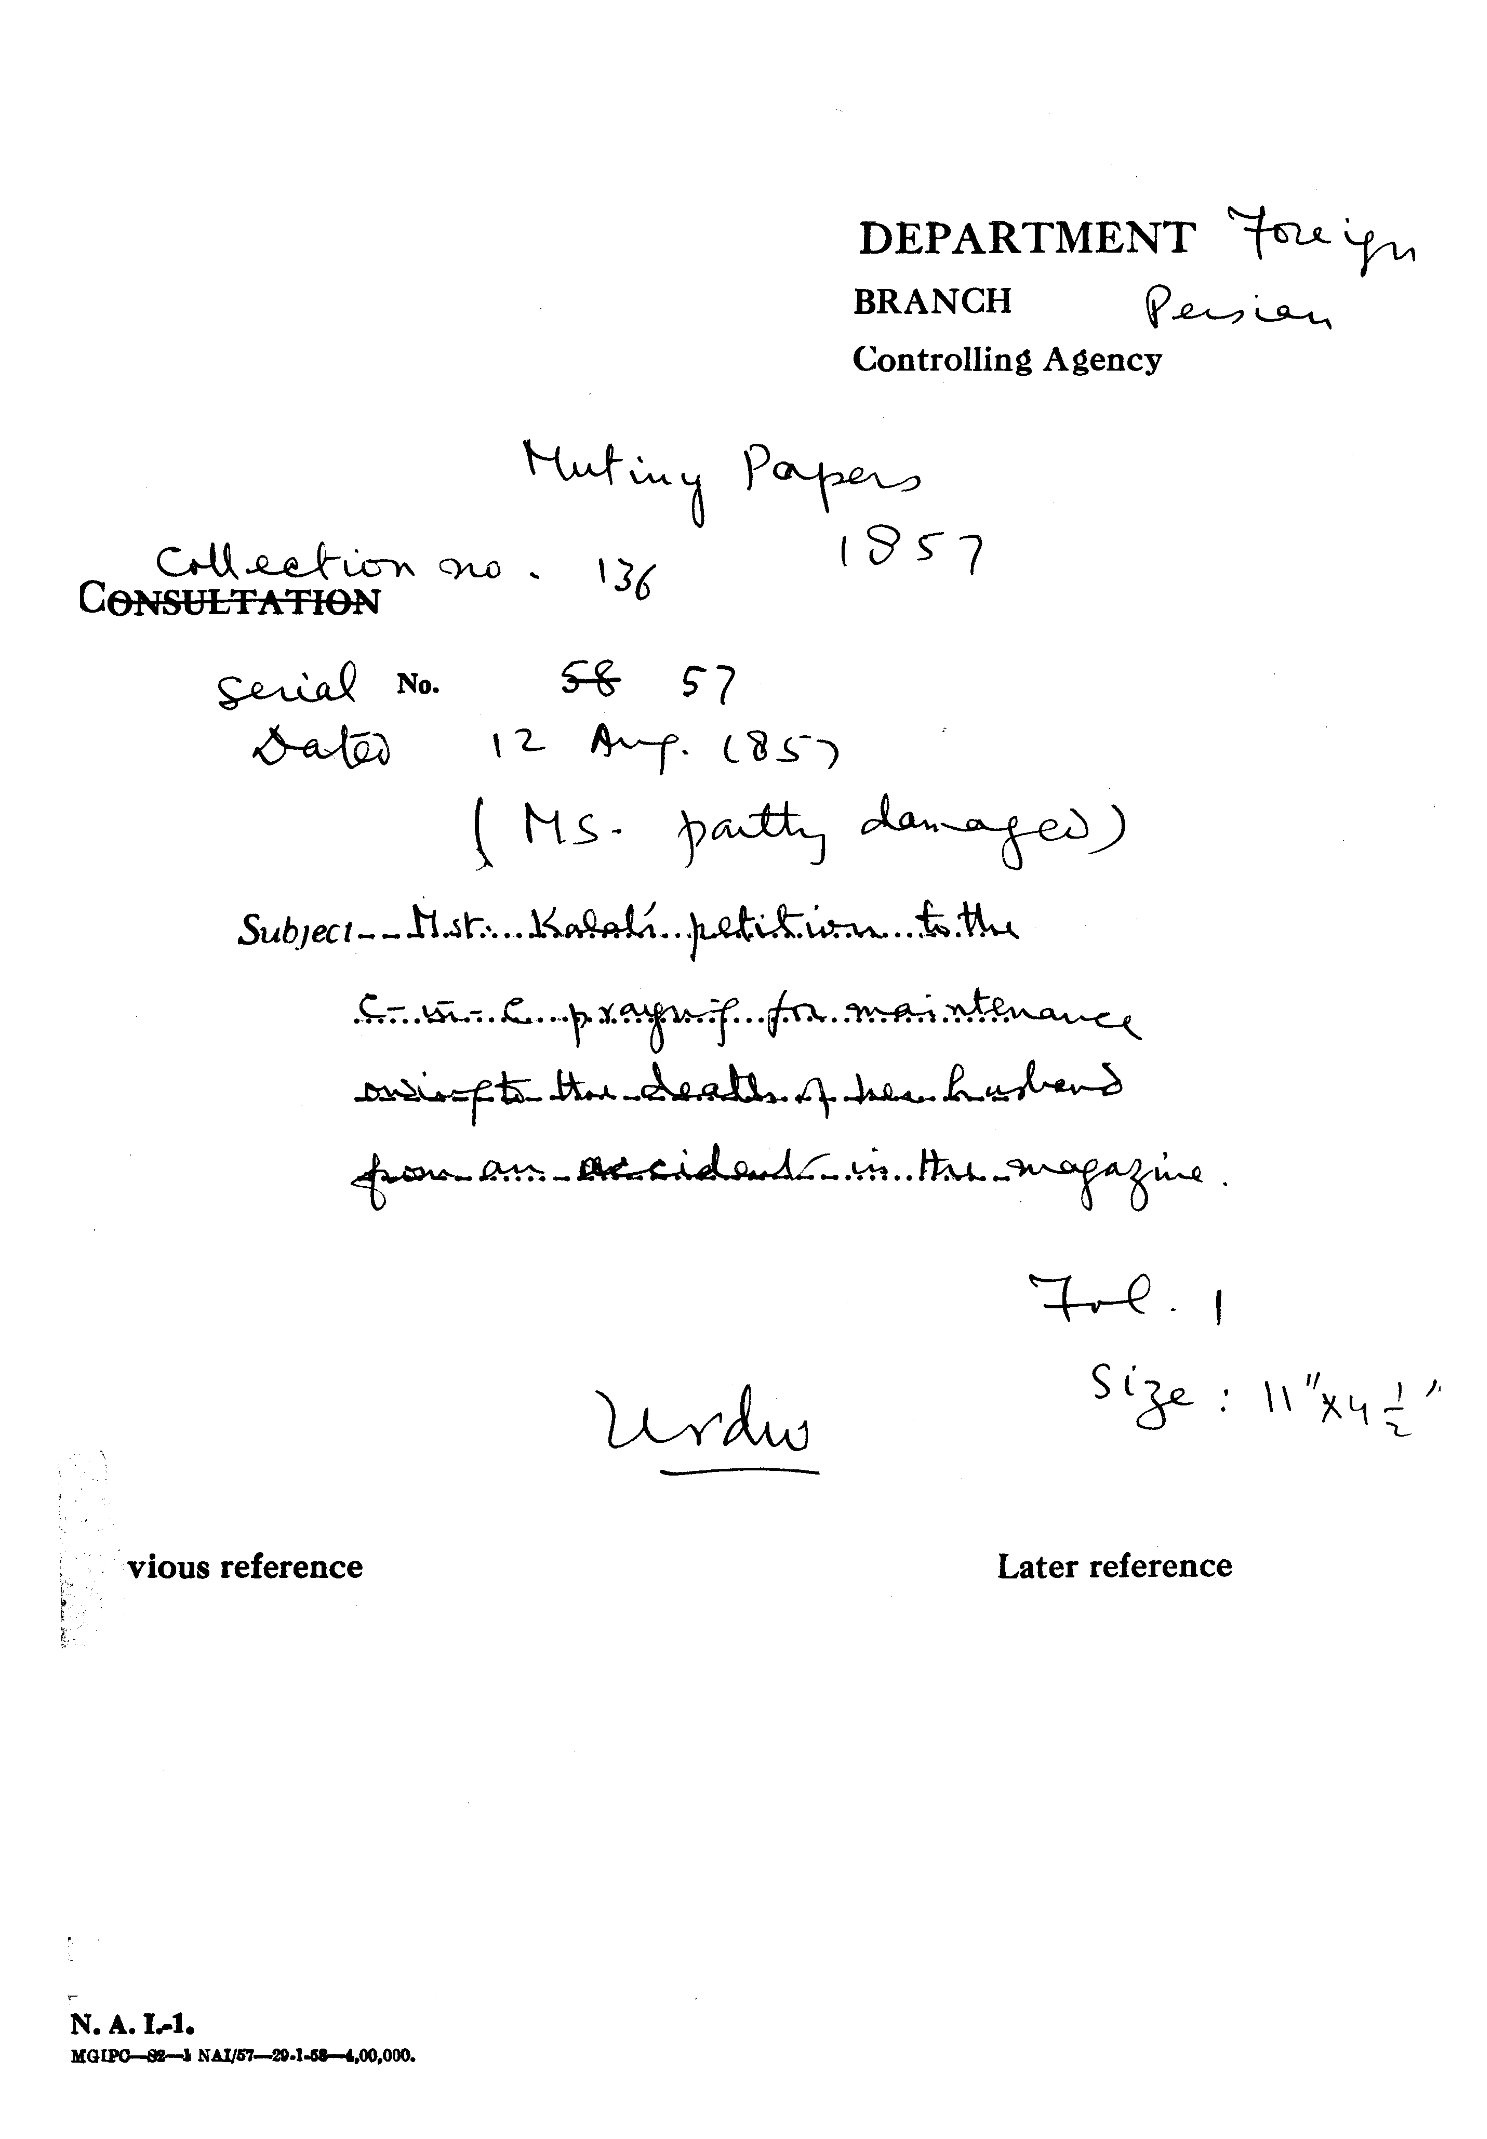 DEPARTMENT Foreign
BRANCH Persian
Controlling Agency
Mutiny Papers
1857
Collection no. 136
CONSULTATION
Serial No. 58 57
Dated 12 Aug. 1857
(MS. partly damaged)
Subject-- Mst. petition to the
C-in-C praying for maintenance
owing to the death of her husband
from an accident in the magazine.
Fol. 1
Size : 11"x4 1/2"
Urdu
vious reference
Later reference
N. A. I.-1.
MGIPC—82—1 NAI/57—29-1-58—4,00,000.